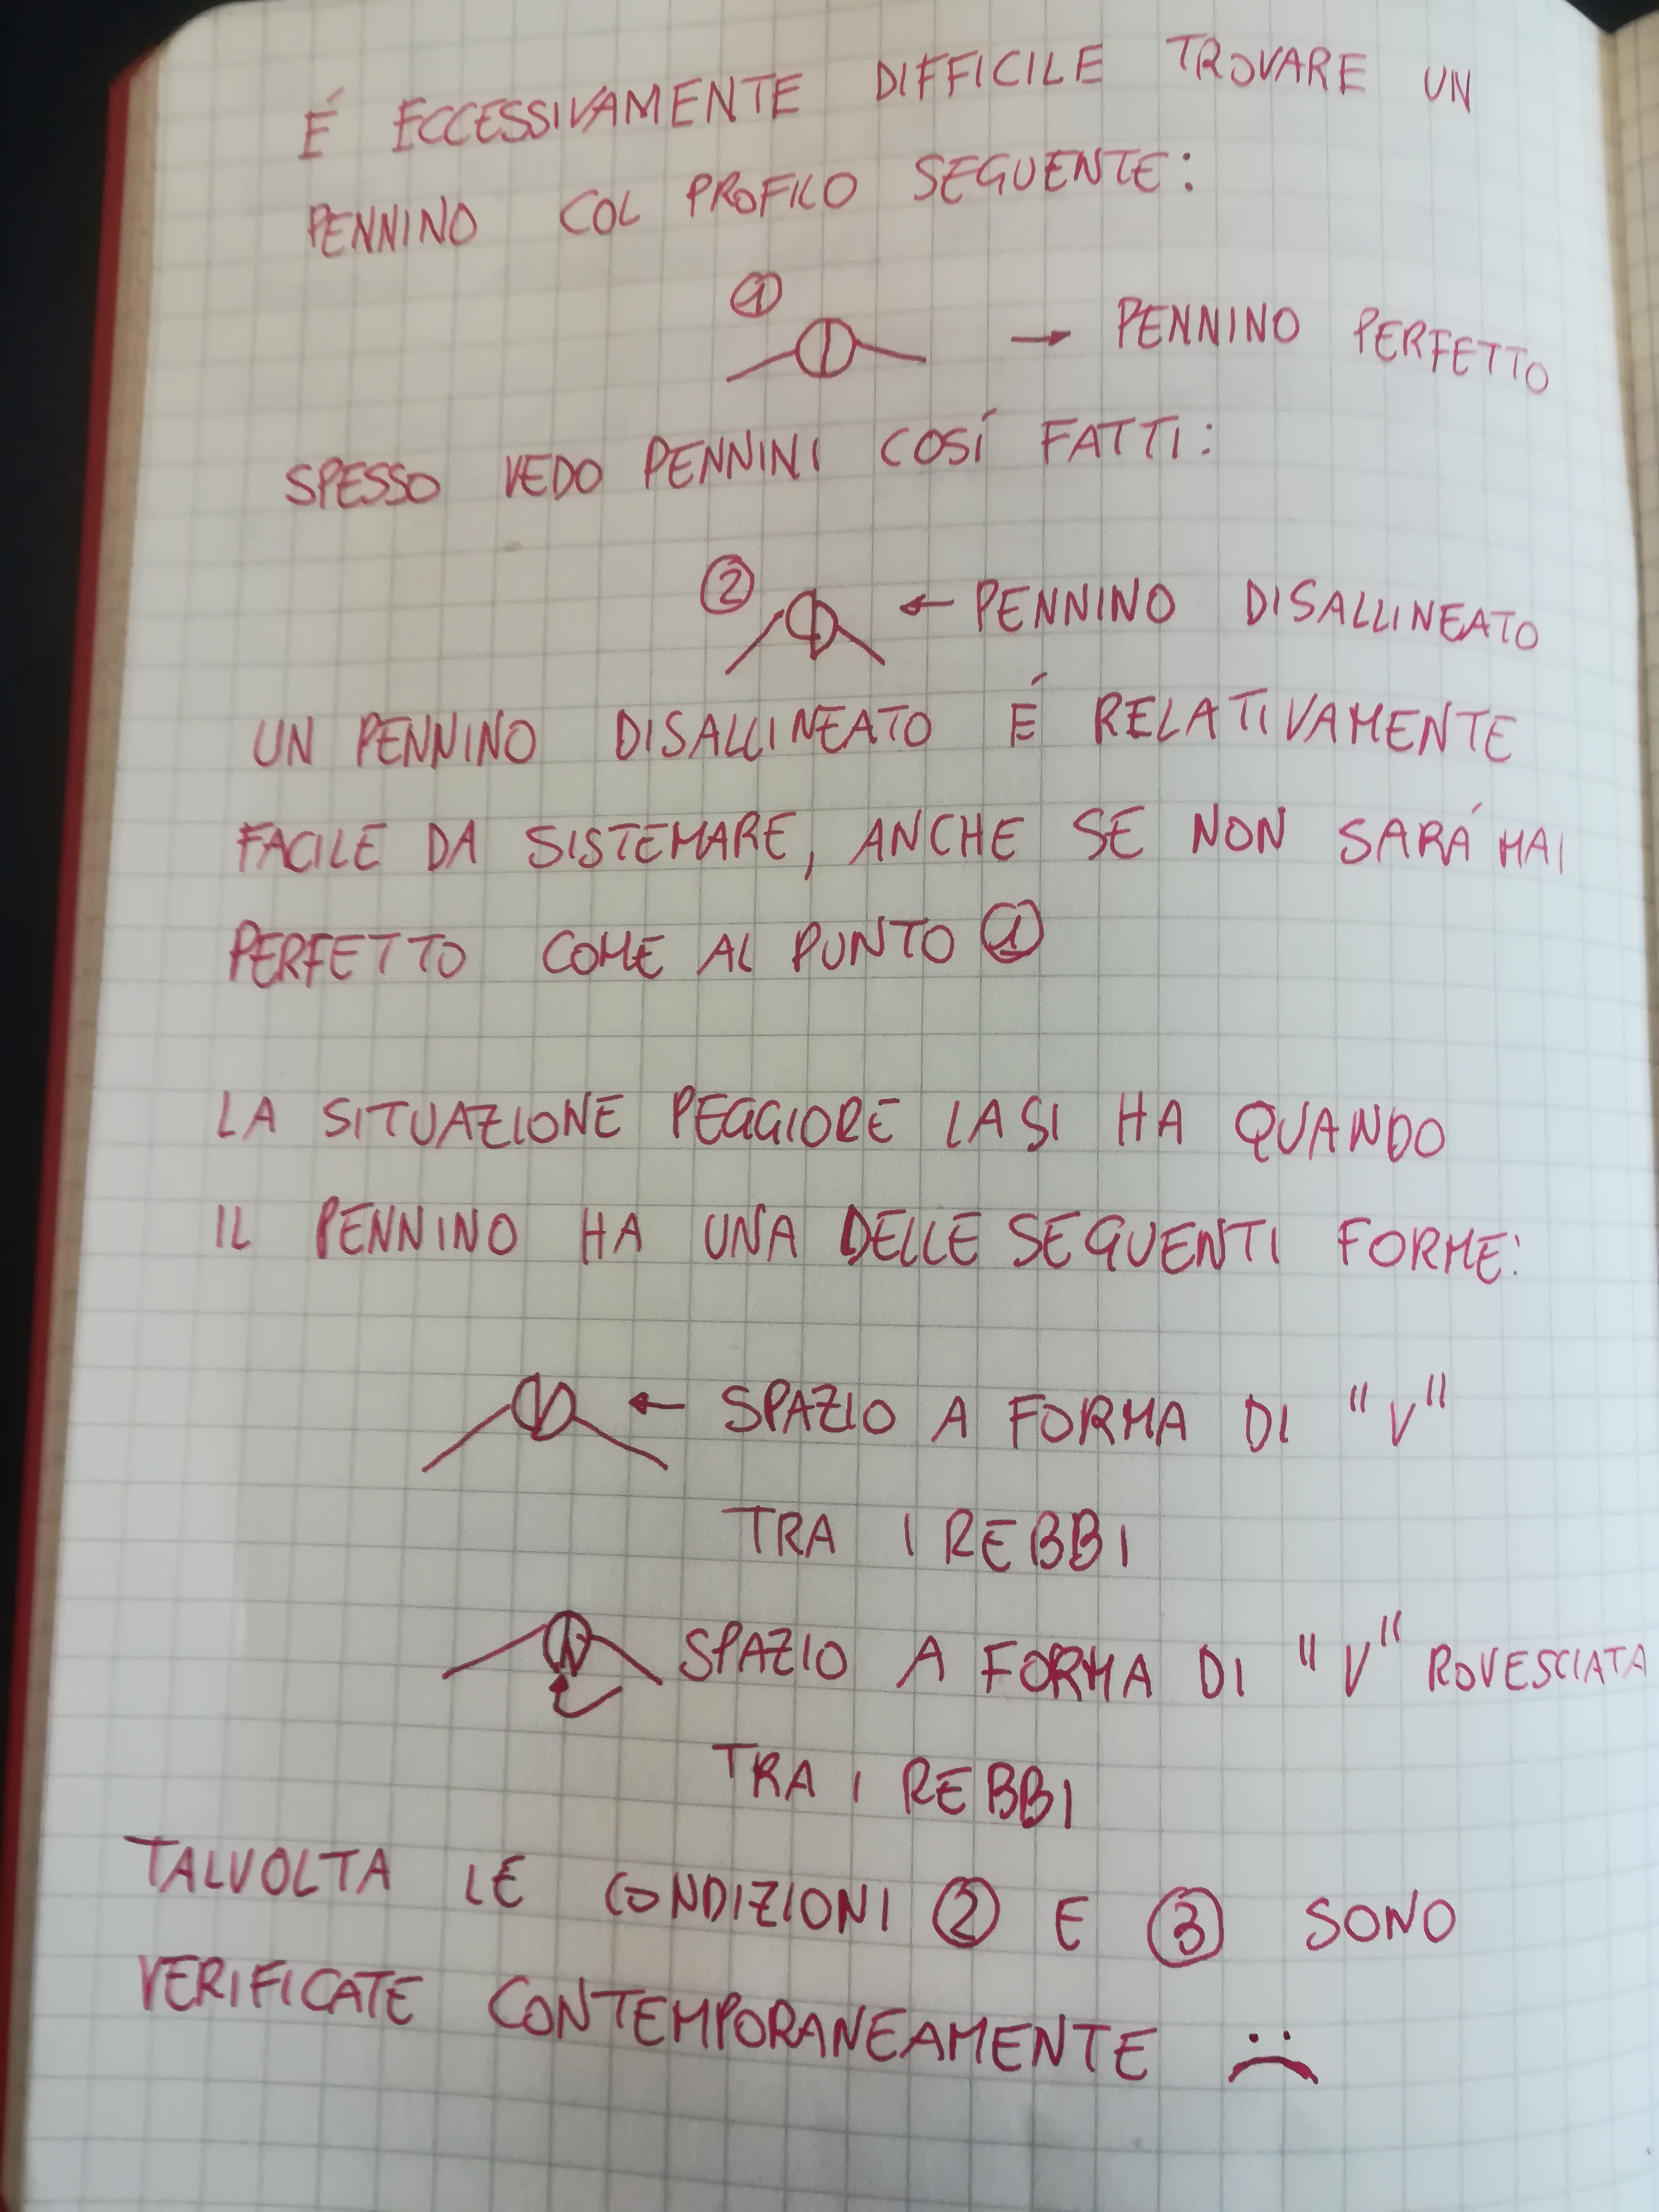 É ECCESSIVAMENTE DIFFICILE TROVARE UN
PENNINO COL PROFILO SEGUENTE:
① → PENNINO PERFETTO
SPESSO VEDO PENNINI COSÍ FATTI:
② ← PENNINO DISALLINEATO
UN PENNINO DISALLINEATO É RELATIVAMENTE
FACILE DA SISTEMARE, ANCHE SE NON SARÁ MAI
PERFETTO COME AL PUNTO ①
LA SITUAZIONE PEGGIORE LA SI HA QUANDO
IL PENNINO HA UNA DELLE SEGUENTI FORME:
← SPAZIO A FORMA DI "V"
TRA I REBBI
SPAZIO A FORMA DI "V" ROVESCIATA
TRA I REBBI
TALVOLTA LE CONDIZIONI ② E ③ SONO
VERIFICATE CONTEMPORANEAMENTE :(